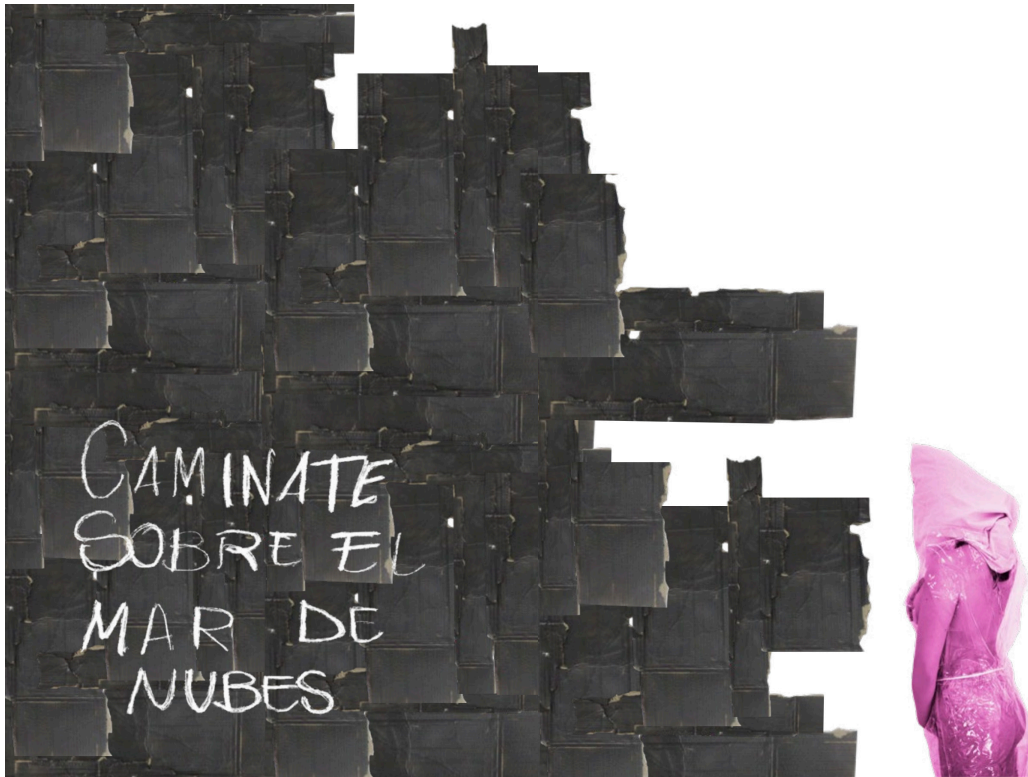 CAMINATE
SOBRE EL
MAR DE
NUBES